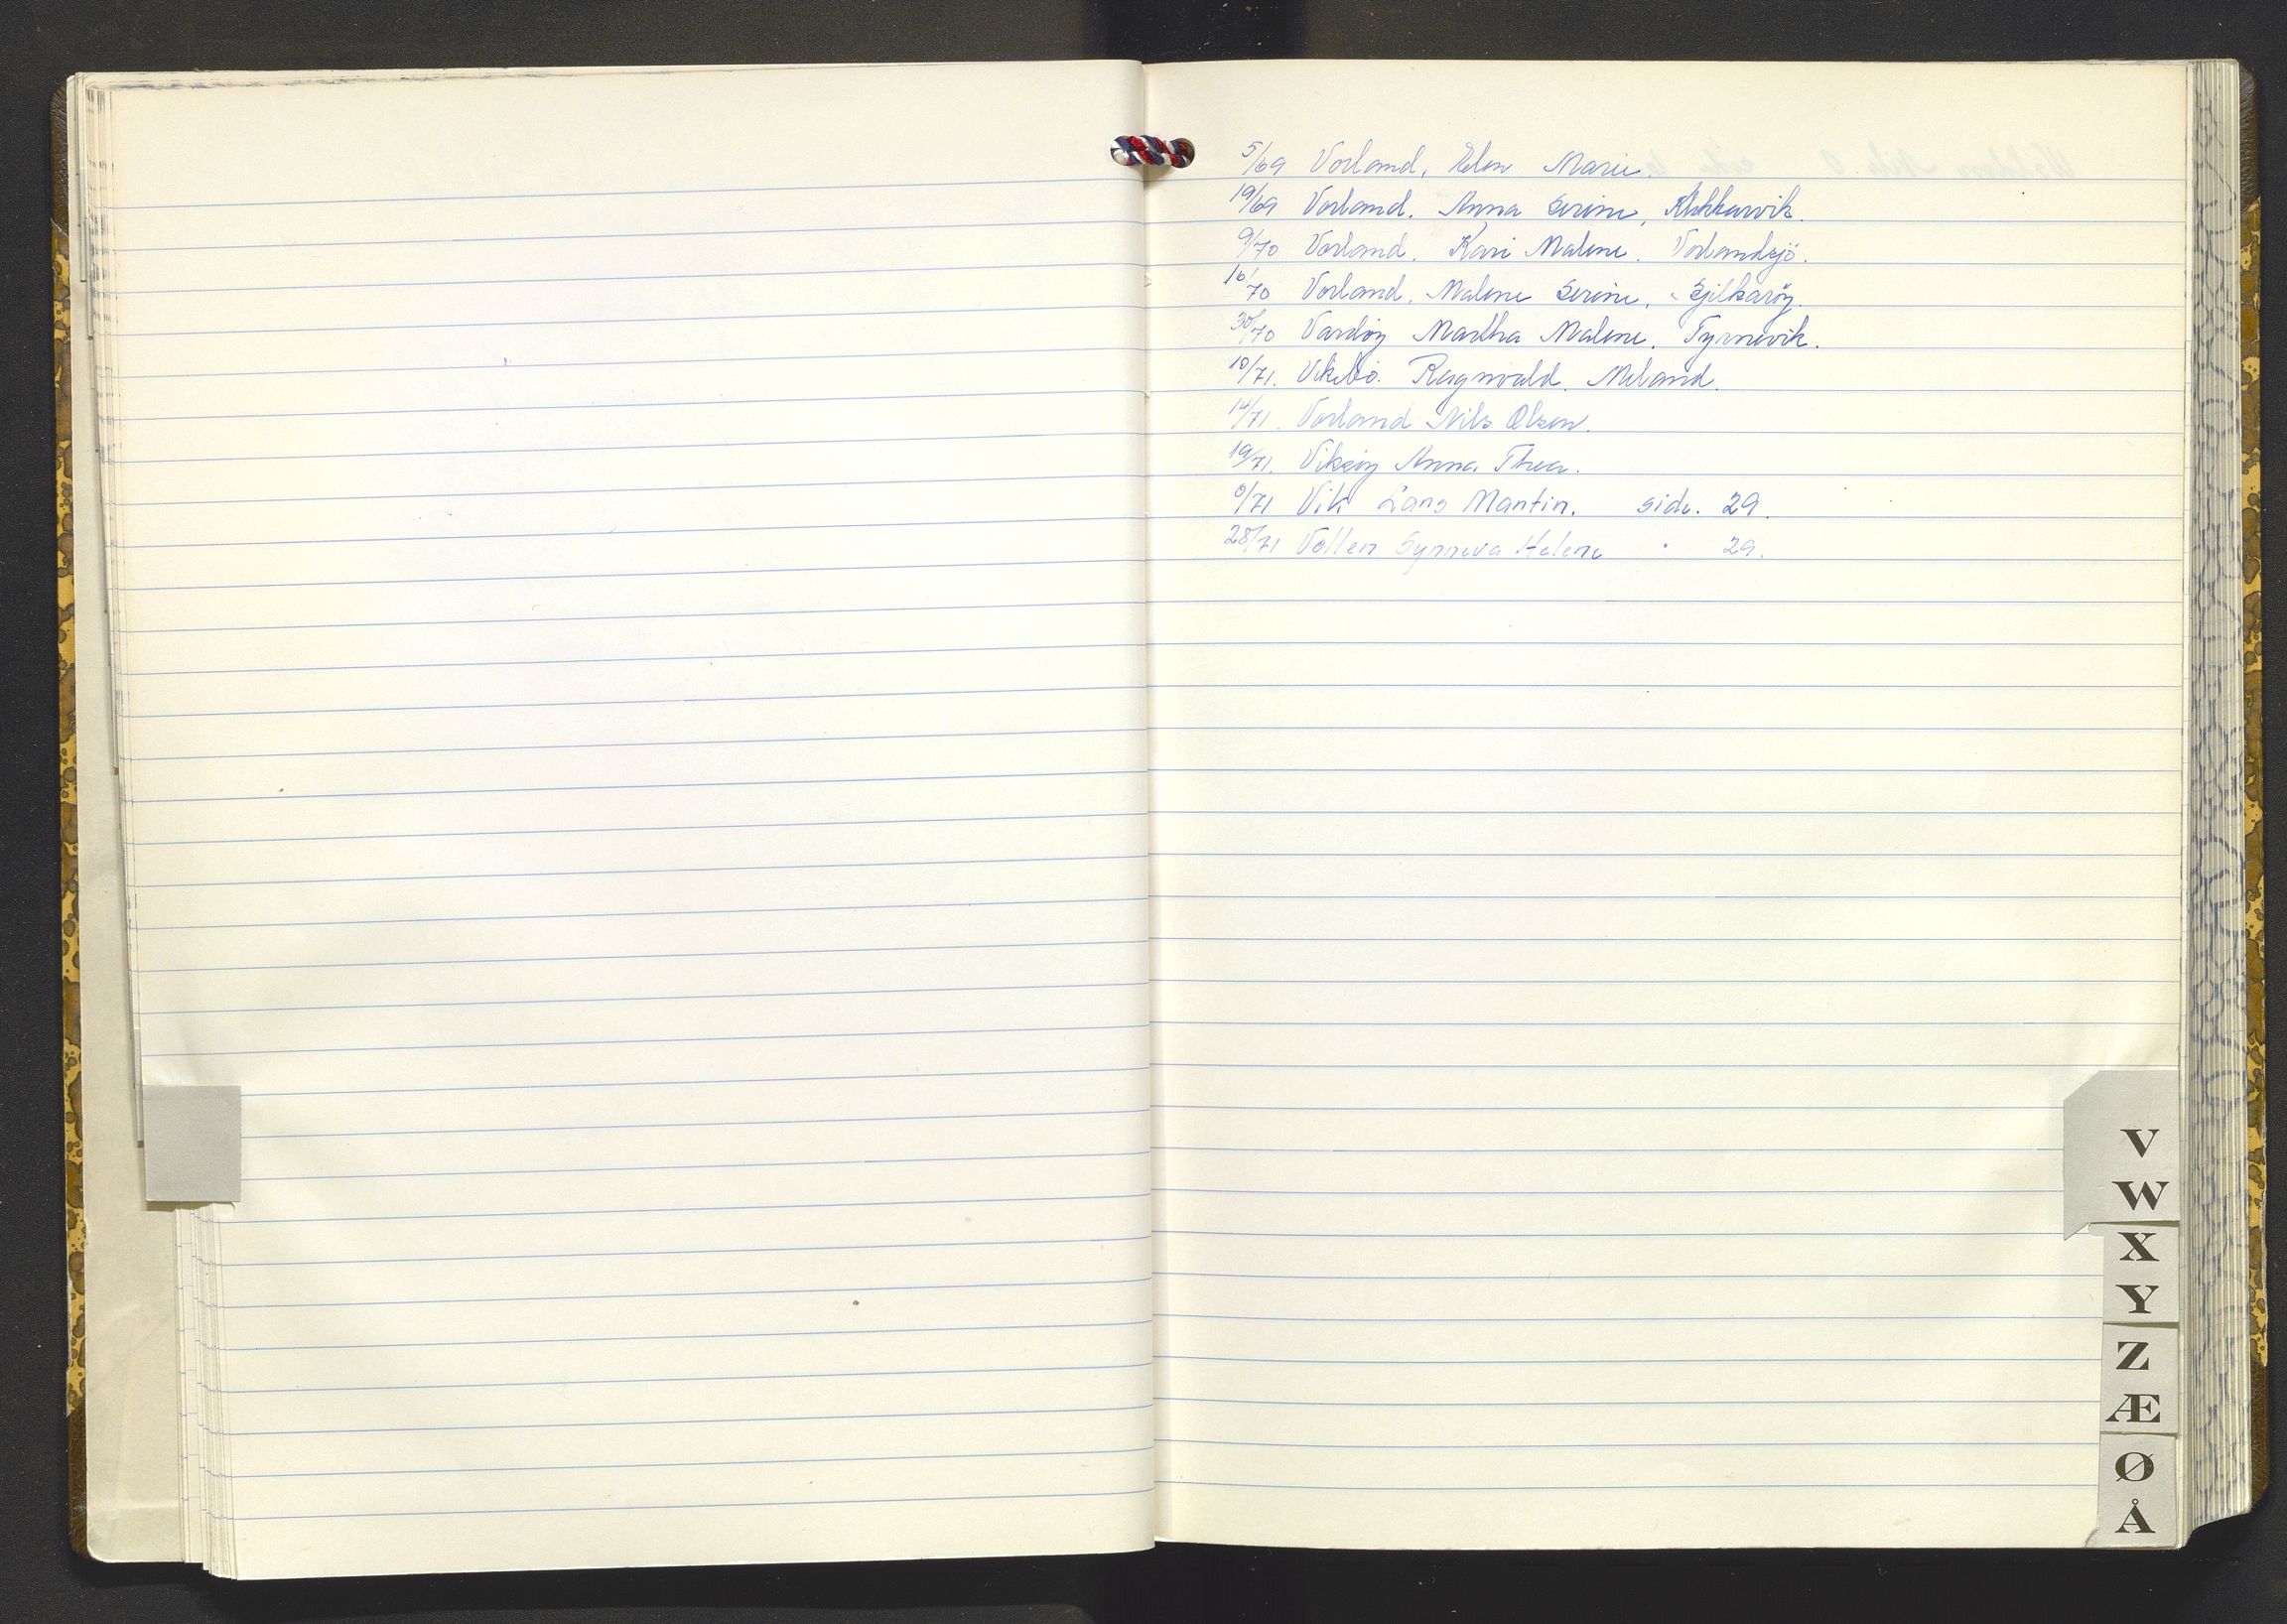 5/69 Vorland, Elen Marie.
19/69 Vorland. Anna Serine, Klokkarvik.
9/70 Vorland. Kari Malene. Vorlandsjö.
16/70 Vorland, Malene Serine,
30/70 Vardöy Martha Malene. Tyrnevik.
10/71. Vikebö. Ragnvald. Miland.
14/71. Vorland Nils Olsen.
19/71. Viksöy Anna Thea.
0/71 Vik Lars Mantin. side. 29.
28/71 Vollen Synneva Helene " 29.
V
W
X
Y
Z
Æ
Ø
Å